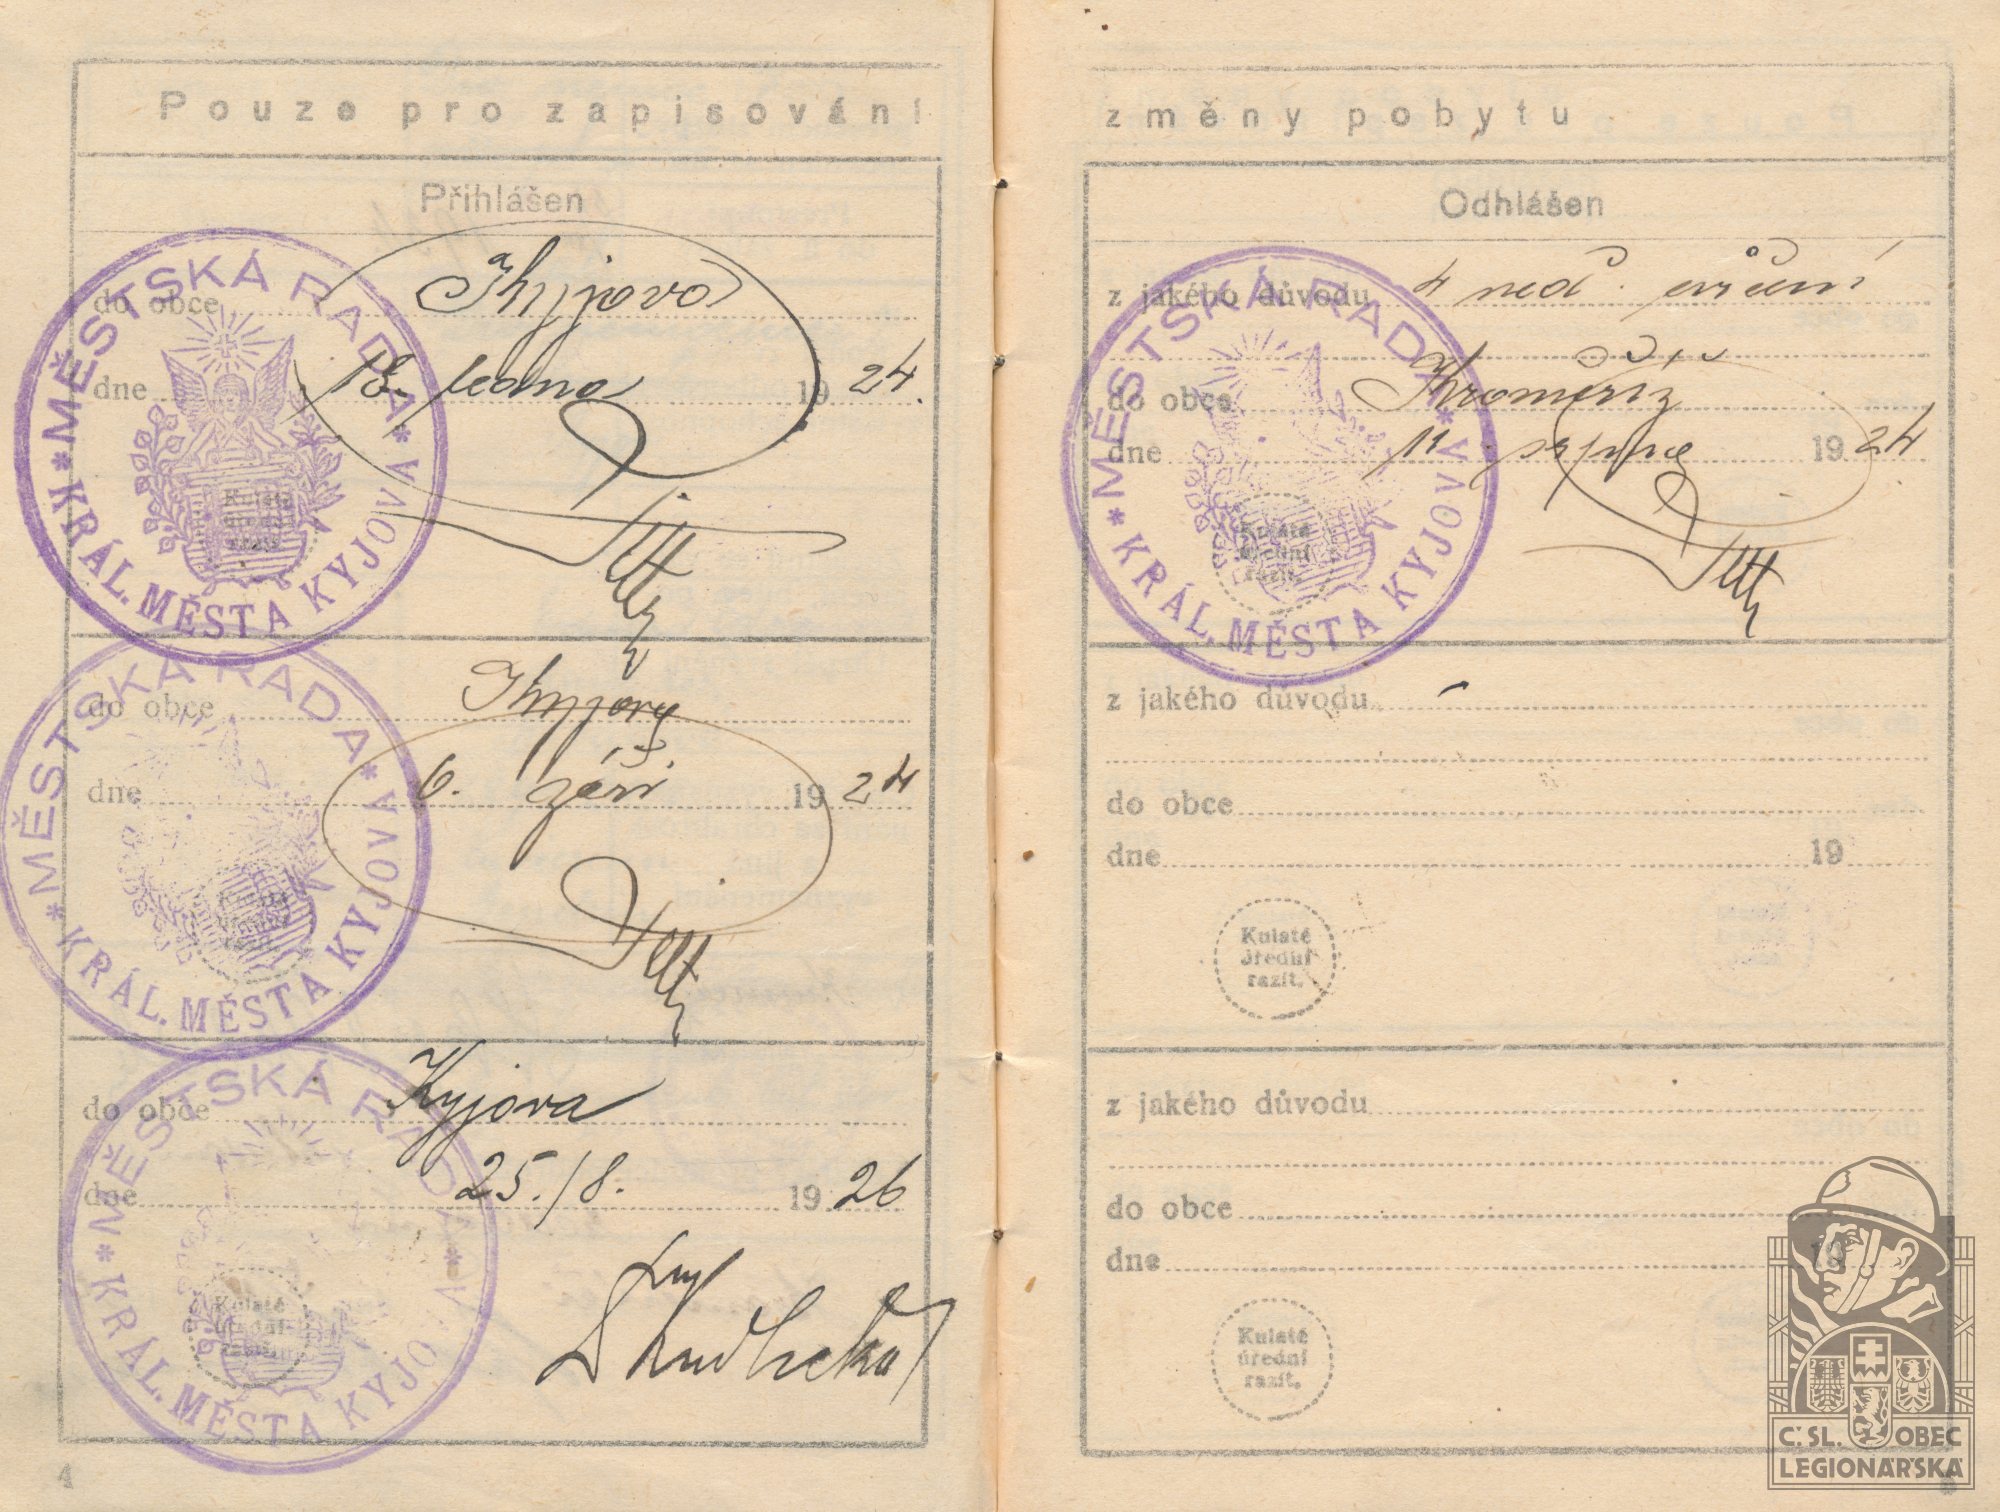 Pouze pro zapisování
Přihlášen
do obce Kyjova
dne 18. ledna 1924.
Kulaté
úřední
razít.
* MĚSTSKÁ RADA * KRÁL. MĚSTA KYJOVA
do obce Kyjova
dne 6. září 1924
Kulaté
úřední
razít.
* MĚSTSKÁ RADA * KRÁL. MĚSTA KYJOVA
do obce Kyjova
dne 25./8. 1926
Kulaté
úřední
razít.
* MĚSTSKÁ RADA * KRÁL. MĚSTA KYJOVA
4
změny pobytu
Odhlášen
z jakého důvodu 4 ned. cvičení
do obce Kroměříž
dne 11. srpna 1924.
Kulaté
úřední
razít.
* MĚSTSKÁ RADA * KRÁL. MĚSTA KYJOVA
z jakého důvodu
do obce
dne 19
Kulaté
úřední
razít.
z jakého důvodu
do obce
dne 19
Kulaté
úřední
razít.
Č. SL. OBEC
LEGIONÁŘSKÁ